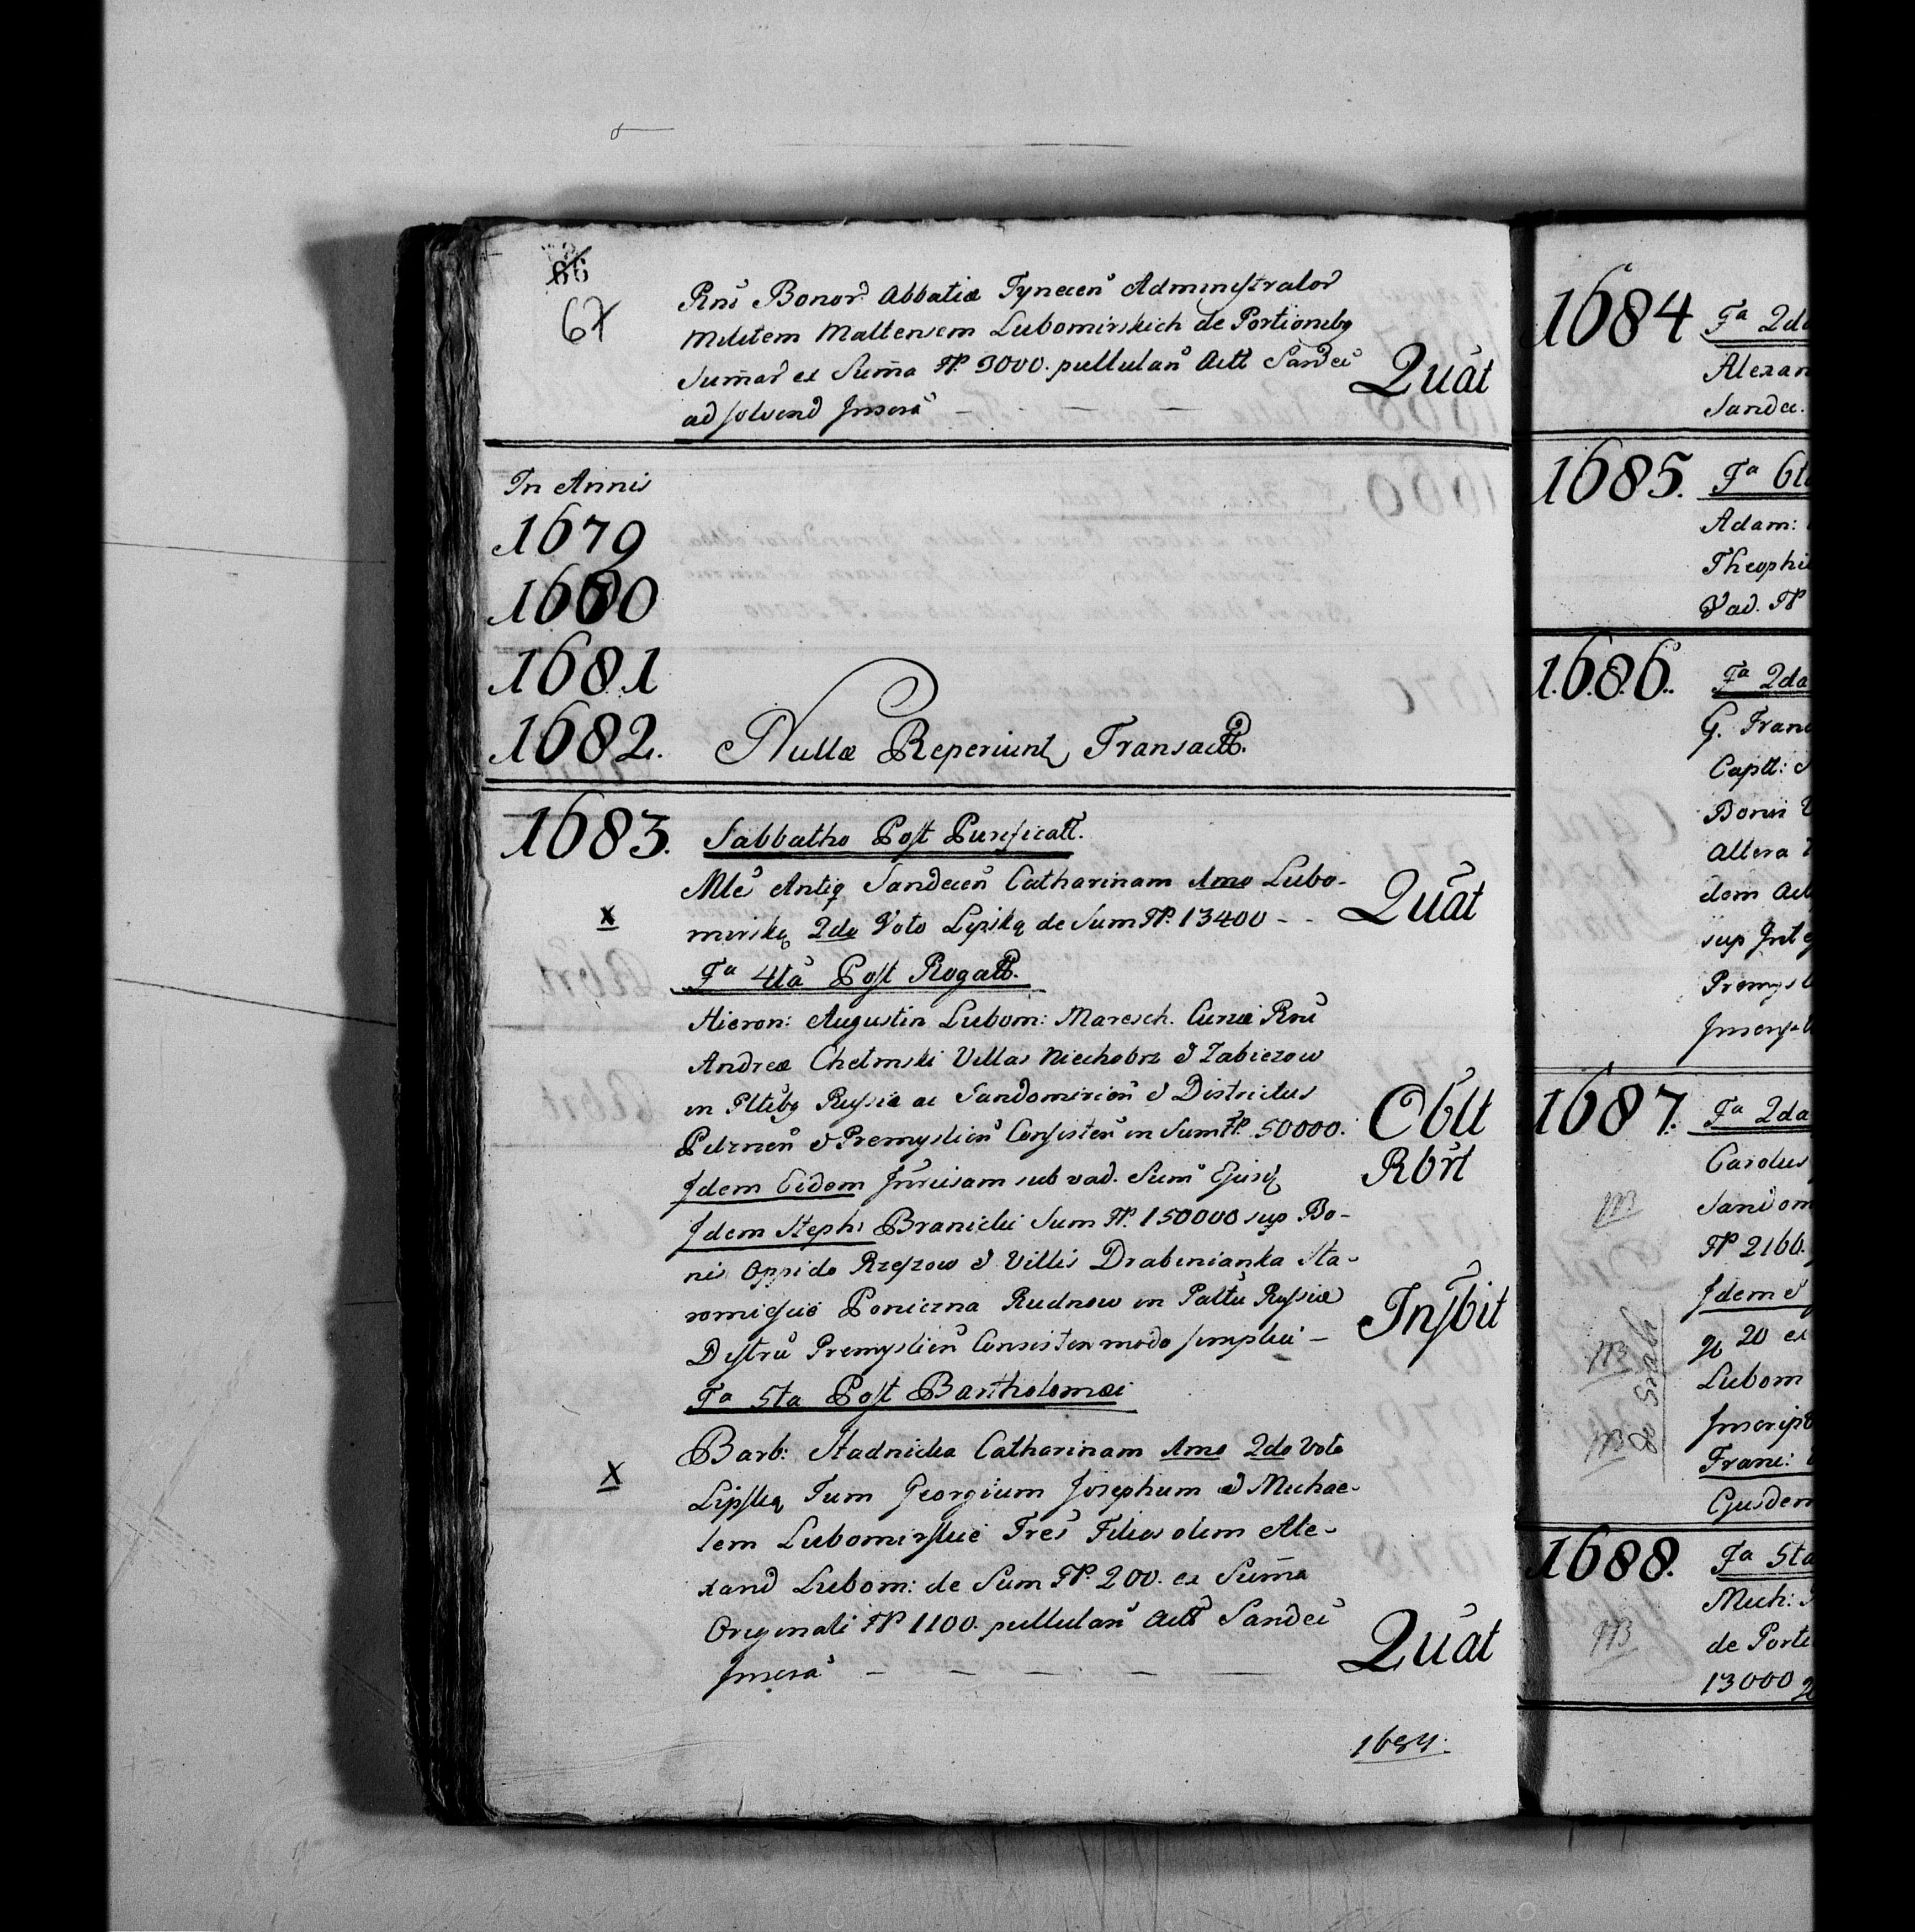 66
67
Rns Bonor Abbatiæ Tynecen Administrator
Militem Maltensem Lubomirskich de Portionibq
Sum̃ar ex Sum̃a FP. 3000. pullulan Actt Sandec
Quãt
ad solvend Inscra
In Annis
1679
1680
1681
1682. Nullæ Reperiunt Transactt.
1683. Sabbatho Post Purificatt.
Mle Antiq Sandecen Catharinam 1mo Lubo-
Quãt
x
mirską 2do Voto Lipską de Sum FP. 13400 - -
Fa 4ta Post Rogatt.
Hieron: Augustin Lubom: Maresch. Curiæ Rni
Andreæ Chełmski Villas Niechobrz & Zabierzow
in Pltibq Russiæ ac Sandomirien & Districtus
Pilznen & Premyslien Consisten in Sum FP. 50000.
Oblt
Idem Eidem sub vad. Sum Ejusq
Rbrt
Idem Steph: Branicki Sum FP. 150000 sup Bo-
nis Oppido Rzeszow & Villis Drabinianka Sta-
romiescie Poniczna Rudnow in Paltu Russiæ
Insbit
Distru Premyslien Consisten modo simplici -
Fa 5ta Post Bartholomæi
Barb: Stadnicka Catharinam 1mo 2do Voto
x
Lipską Tum Georgium Josephum & Michae-
lem Lubomirskie Tres Filios olim Ale-
xand Lubom: de Sum FP. 200. ex Sum̃a
Originali FP 1100. pullulan Actt Sandec
Quãt
Inscra
1684.
1684 Fa 2d
Alexan
Sandec.
1685. Fa 6t
Adam:
Theophi
Vad. FP
1686. Fa 2da
G. Fran
Captt:
Bonis
Altera
dem Act
sup Int
Premysl
Inscrip
1687. Fa 2da
Carolus
Sandom
FP 2160.
Idem &
20 ex
Lubom
Inscrip
Franc:
Ejusdem
1688. Fa 5ta
Mich:
de Porti
13000